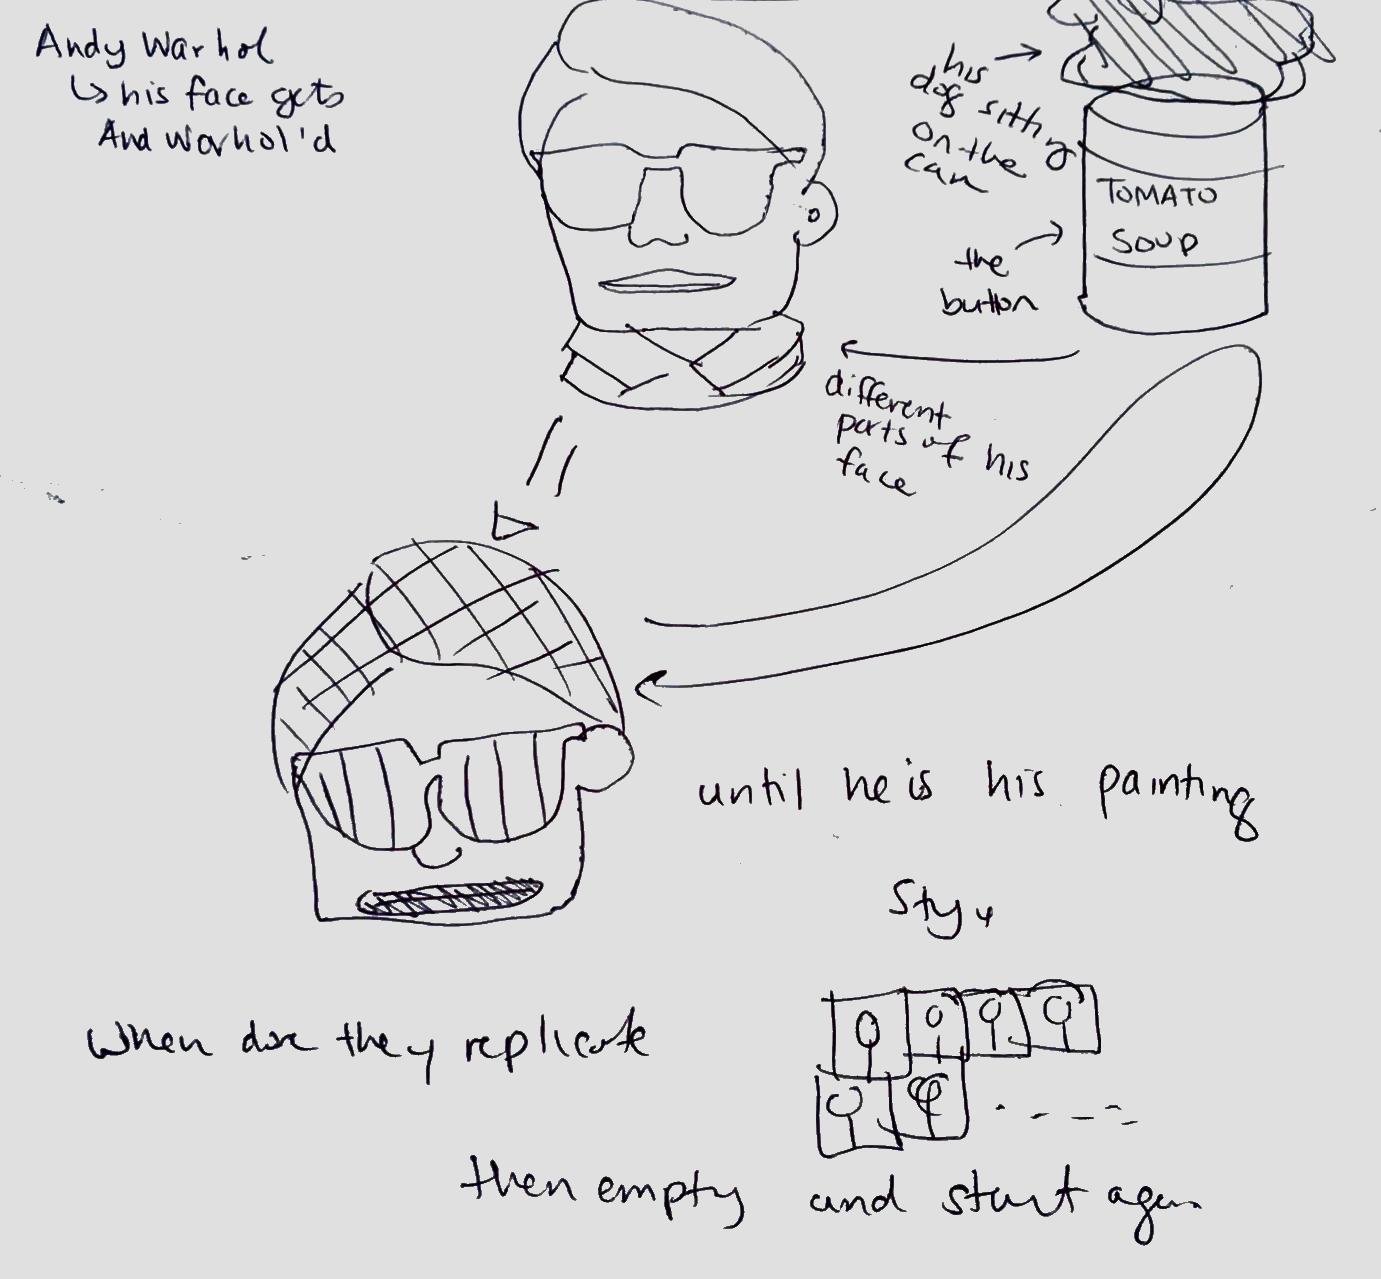 Andy Warhol
↳ his face gets
And Warhol'd
his
dog sitting
on the
can
TOMATO
SOUP
the
button
different
parts of his
face
until he is his painting
Style
When done they replicate
then empty and start again